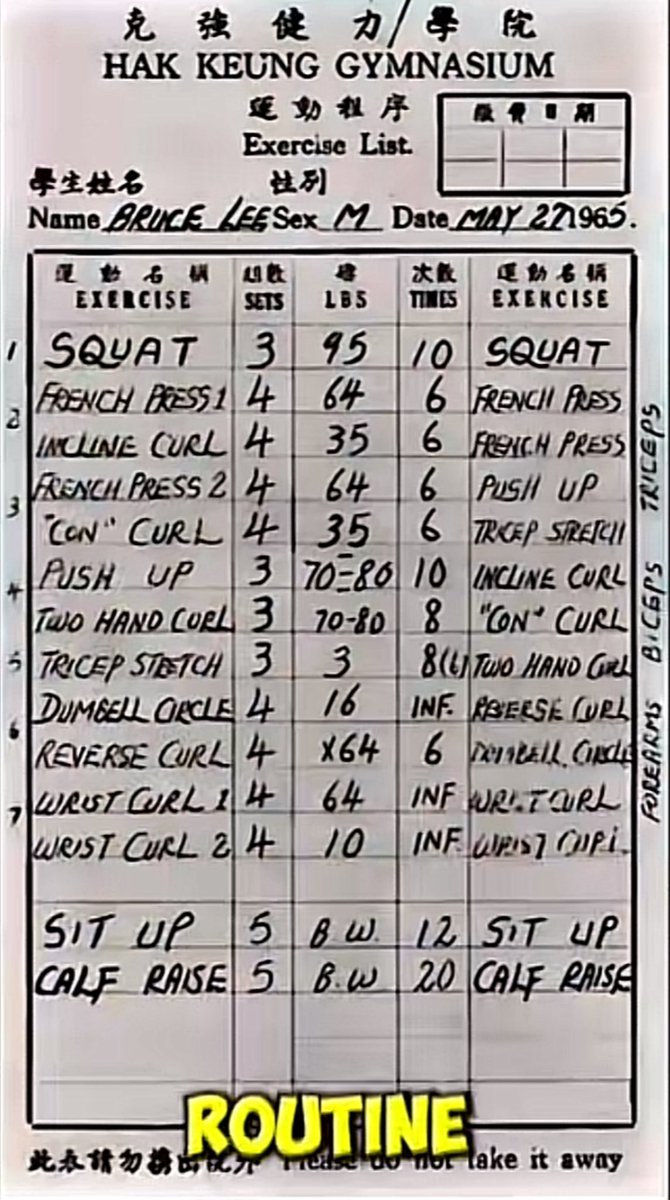 克強健力學院
HAK KEUNG GYMNASIUM
運動程序
Exercise List.
繳費日期
學生姓名 性別
Name BRUCE LEE Sex M Date MAY 27 1965.
運動名稱 組數 磅 次數 運動名稱
EXERCISE SETS LBS TIMES EXERCISE
1 SQUAT 3 95 10 SQUAT
FRENCH PRESS 1 4 64 6 FRENCH PRESS
2
INCLINE CURL 4 35 6 FRENCH PRESS
FRENCH PRESS 2 4 64 6 PUSH UP
3
"CON" CURL 4 35 6 TRICEP STRETCH
PUSH UP 3 70-80 10 INCLINE CURL
4
TWO HAND CURL 3 70-80 8 "CON" CURL
5 TRICEP STRETCH 3 3 8(6) TWO HAND CURL
DUMBELL CIRCLE 4 16 INF. REVERSE CURL
6
REVERSE CURL 4 x64 6 DUMBELL CIRCLE
WRIST CURL 1 4 64 INF WRIST CURL
7
WRIST CURL 2 4 10 INF. WRIST CURL
SIT UP 5 B.W. 12 SIT UP
CALF RAISE 5 B.W 20 CALF RAISE
TRICEPS
BICEPS
FOREARMS
ROUTINE
此表請勿携出院外 Please do not take it away